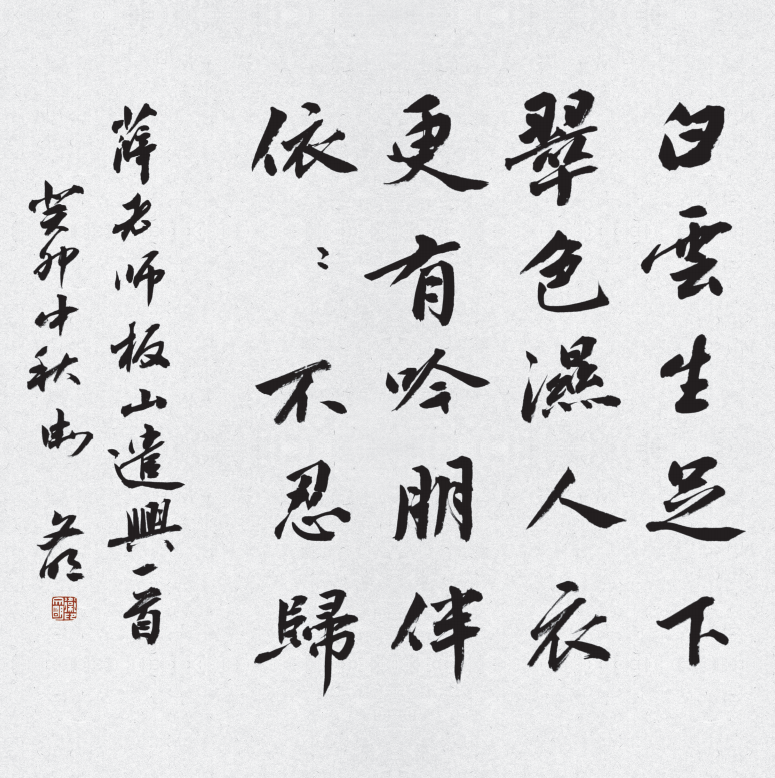 白雲生足下
翠色濕人衣
更有吟朋伴
依〻不忍歸
薛老师板山遣興一首
癸卯中秋